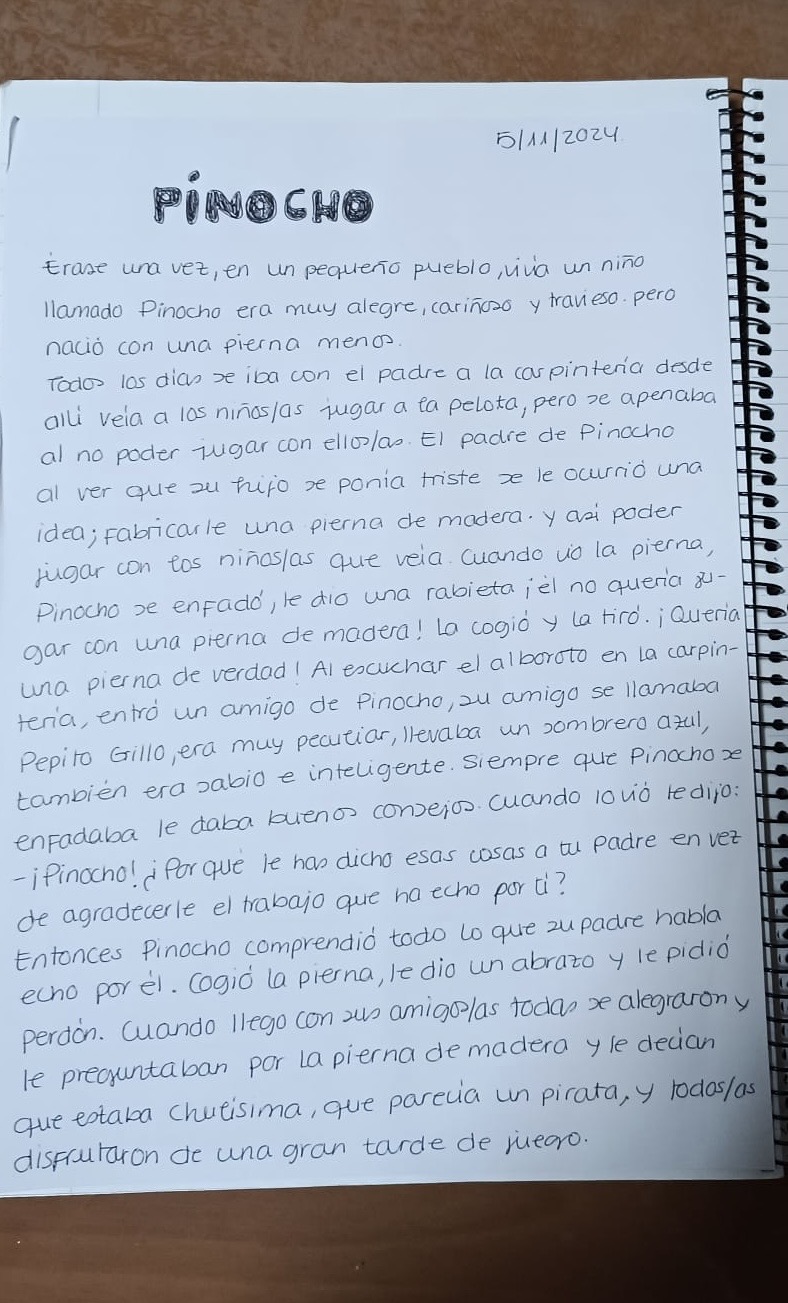 5/11/2024
PINOCHO
Érase una vez, en un pequeño pueblo, vivía un niño
llamado Pinocho era muy alegre, cariñoso y travieso. pero
nació con una pierna menos.
Todos los dias se iba con el padre a la carpintería desde
alli veía a los niños/as jugar a la pelota, pero se apenaba
al no poder jugar con ellos/as. El padre de Pinocho
al ver que su hijo se ponía triste se le ocurrió una
idea; Fabricarle una pierna de madera. y asi poder
jugar con los niños/as que veía. Cuando vio la pierna,
Pinocho se enfadó, le dio una rabieta ¡él no quería ju-
gar con una pierna de madera! La cogió y la tiró. ¡Quería
una pierna de verdad! Al escuchar el alboroto en la carpin-
tería, entró un amigo de Pinocho, su amigo se llamaba
Pepito Grillo, era muy peculiar, llevaba un sombrero azul,
también era sabio e inteligente. Siempre que Pinocho se
enfadaba le daba buenos consejos. Cuando lo vió le dijo:
-¡Pinocho! ¿Por qué le has dicho esas cosas a tu padre en vez
de agradecerle el trabajo que ha echo por ti?
Entonces Pinocho comprendió todo lo que su padre habia
echo por él. Cogió la pierna, le dio un abrazo y le pidió
perdón. Cuando llego con sus amigos/as todos se alegraron y
le preguntaban por la pierna de madera y le decían
que estaba chulísima, que parecía un pirata, y todos/as
disfrutaron de una gran tarde de juego.